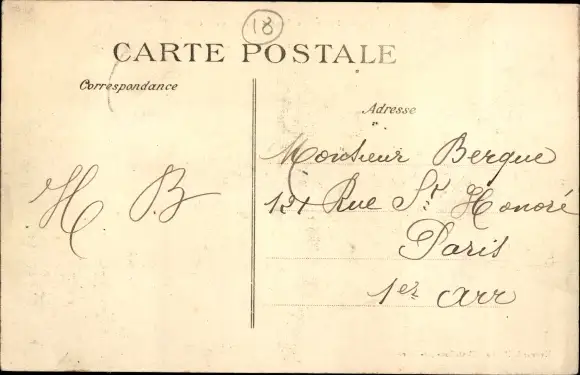 18
CARTE POSTALE
Correspondance
Adresse
Monsieur Berque
121 Rue St Honoré
Paris
1er Arr
H B